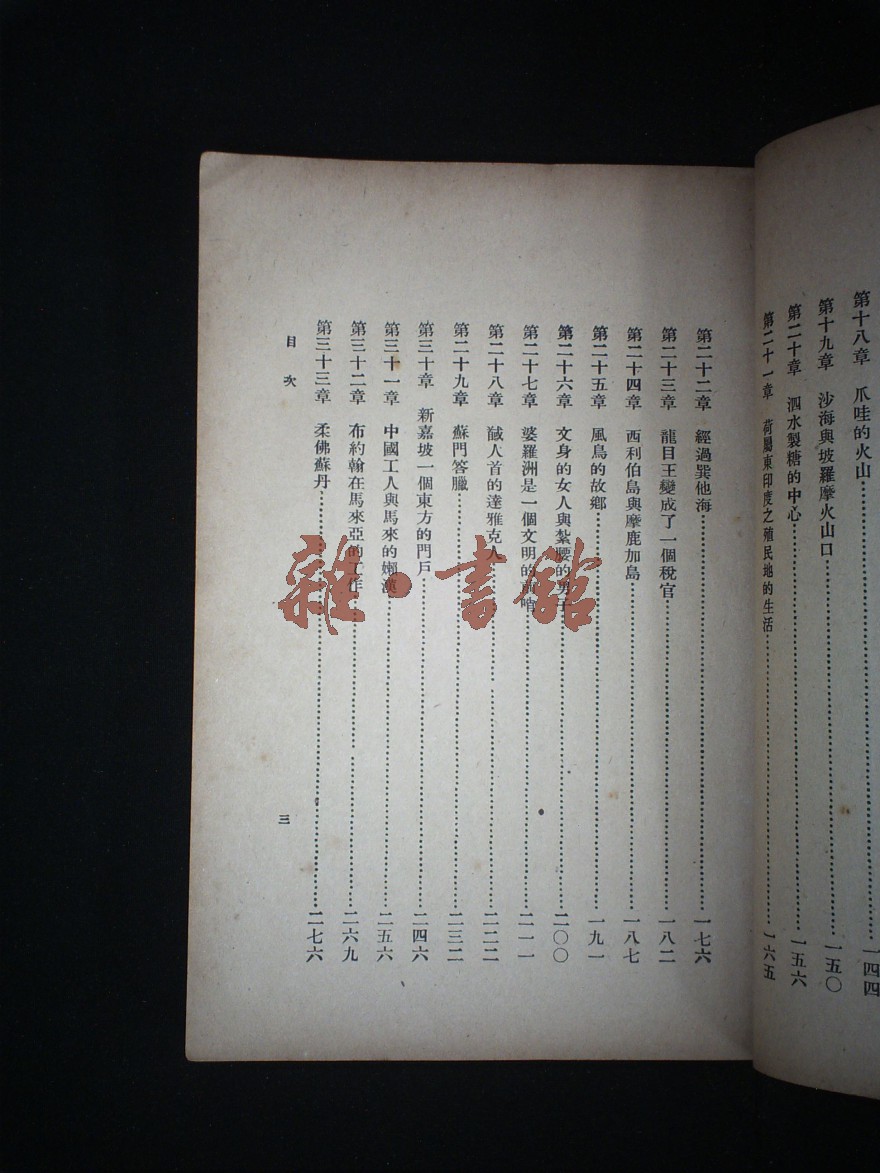 第十八章 爪哇的火山……一四四
第十九章 沙海與坡羅摩火山口……一五〇
第二十章 泗水製糖的中心……一五六
第二十一章 荷屬東印度之殖民地的生活……一六五
第二十二章 經過巽他海……一七六
第二十三章 龍目王變成了一個稅官……一八二
第二十四章 西利伯島與摩鹿加島……一八七
第二十五章 風鳥的故鄉……一九一
第二十六章 文身的女人與紮腰的男子……二〇〇
第二十七章 婆羅洲是一個文明的前哨……二一一
第二十八章 馘人首的達雅克人……二二二
第二十九章 蘇門答臘……二三二
第三十章 新嘉坡一個東方的門戶……二四六
第三十一章 中國工人與馬來的嬾漢……二五六
第三十二章 布約翰在馬來亞的工作……二六九
第三十三章 柔佛蘇丹……二七六
目次
三
雜·書館